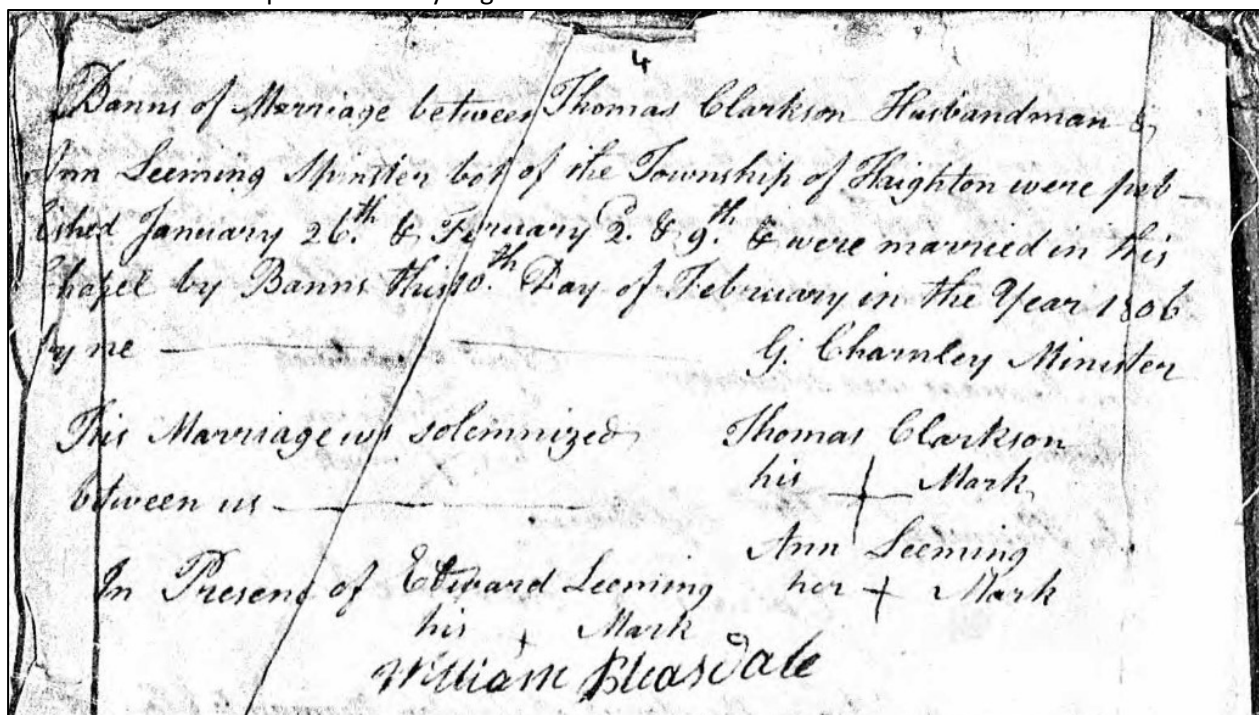 4
Banns of Marriage between Thomas Clarkson Husbandman &
Ann Leeming Spinster bot of the Township of Haighton were pub-
lished January 26.th & Feruary 2. & 9.th & were married in this
Chapel by Banns this 10.th Day of February in the Year 1806
by me G. Charnley Minister
This Marriage ws solemnized Thomas Clarkson
between us his + Mark
Ann Leeming
In Presene of Edward Leeming her + Mark
his + Mark
William Bleasdale